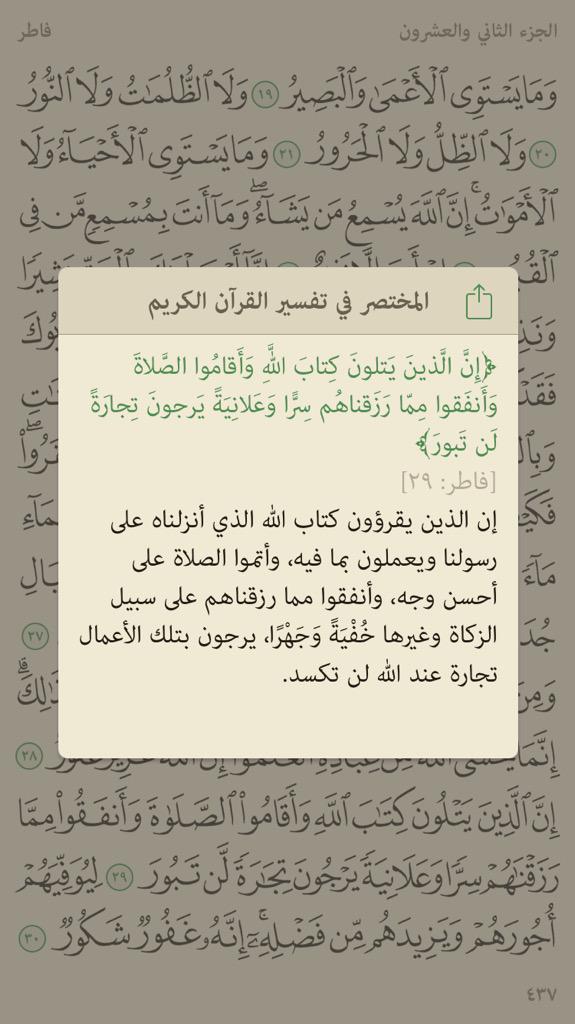 الجزء الثاني والعشرون
فاطر
وَمَا يَسْتَوِى ٱلْأَعْمَىٰ وَٱلْبَصِيرُ ١٩ وَلَا ٱلظُّلُمَٰتُ وَلَا ٱلنُّورُ
٢٠ وَلَا ٱلظِّلُّ وَلَا ٱلْحَرُورُ ٢١ وَمَا يَسْتَوِى ٱلْأَحْيَآءُ وَلَا
ٱلْأَمْوَٰتُ ۚ إِنَّ ٱللَّهَ يُسْمِعُ مَن يَشَآءُ ۖ وَمَآ أَنتَ بِمُسْمِعٍ مَّن فِى
المختصر في تفسير القرآن الكريم
﴿إِنَّ الَّذينَ يَتلونَ كِتابَ اللَّهِ وَأَقامُوا الصَّلاةَ
وَأَنفَقوا مِمّا رَزَقناهُم سِرًّا وَعَلانِيَةً يَرجونَ تِجارَةً
لَن تَبورَ﴾
[فاطر: ٢٩]
إن الذين يقرؤون كتاب الله الذي أنزلناه على
رسولنا ويعملون بما فيه، وأتموا الصلاة على
أحسن وجه، وأنفقوا مما رزقناهم على سبيل
الزكاة وغيرها خُفْيَةً وَجَهْرًا، يرجون بتلك الأعمال
تجارة عند الله لن تكسد.
٢٧
٢٨
إِنَّ ٱلَّذِينَ يَتْلُونَ كِتَٰبَ ٱللَّهِ وَأَقَامُوا۟ ٱلصَّلَوٰةَ وَأَنفَقُوا۟ مِمَّا
رَزَقْنَٰهُمْ سِرًّا وَعَلَانِيَةً يَرْجُونَ تِجَٰرَةً لَّن تَبُورَ ٢٩ لِيُوَفِّيَهُمْ
أُجُورَهُمْ وَيَزِيدَهُم مِّن فَضْلِهِۦٓ ۚ إِنَّهُۥ غَفُورٌ شَكُورٌ ٣٠
٤٣٧